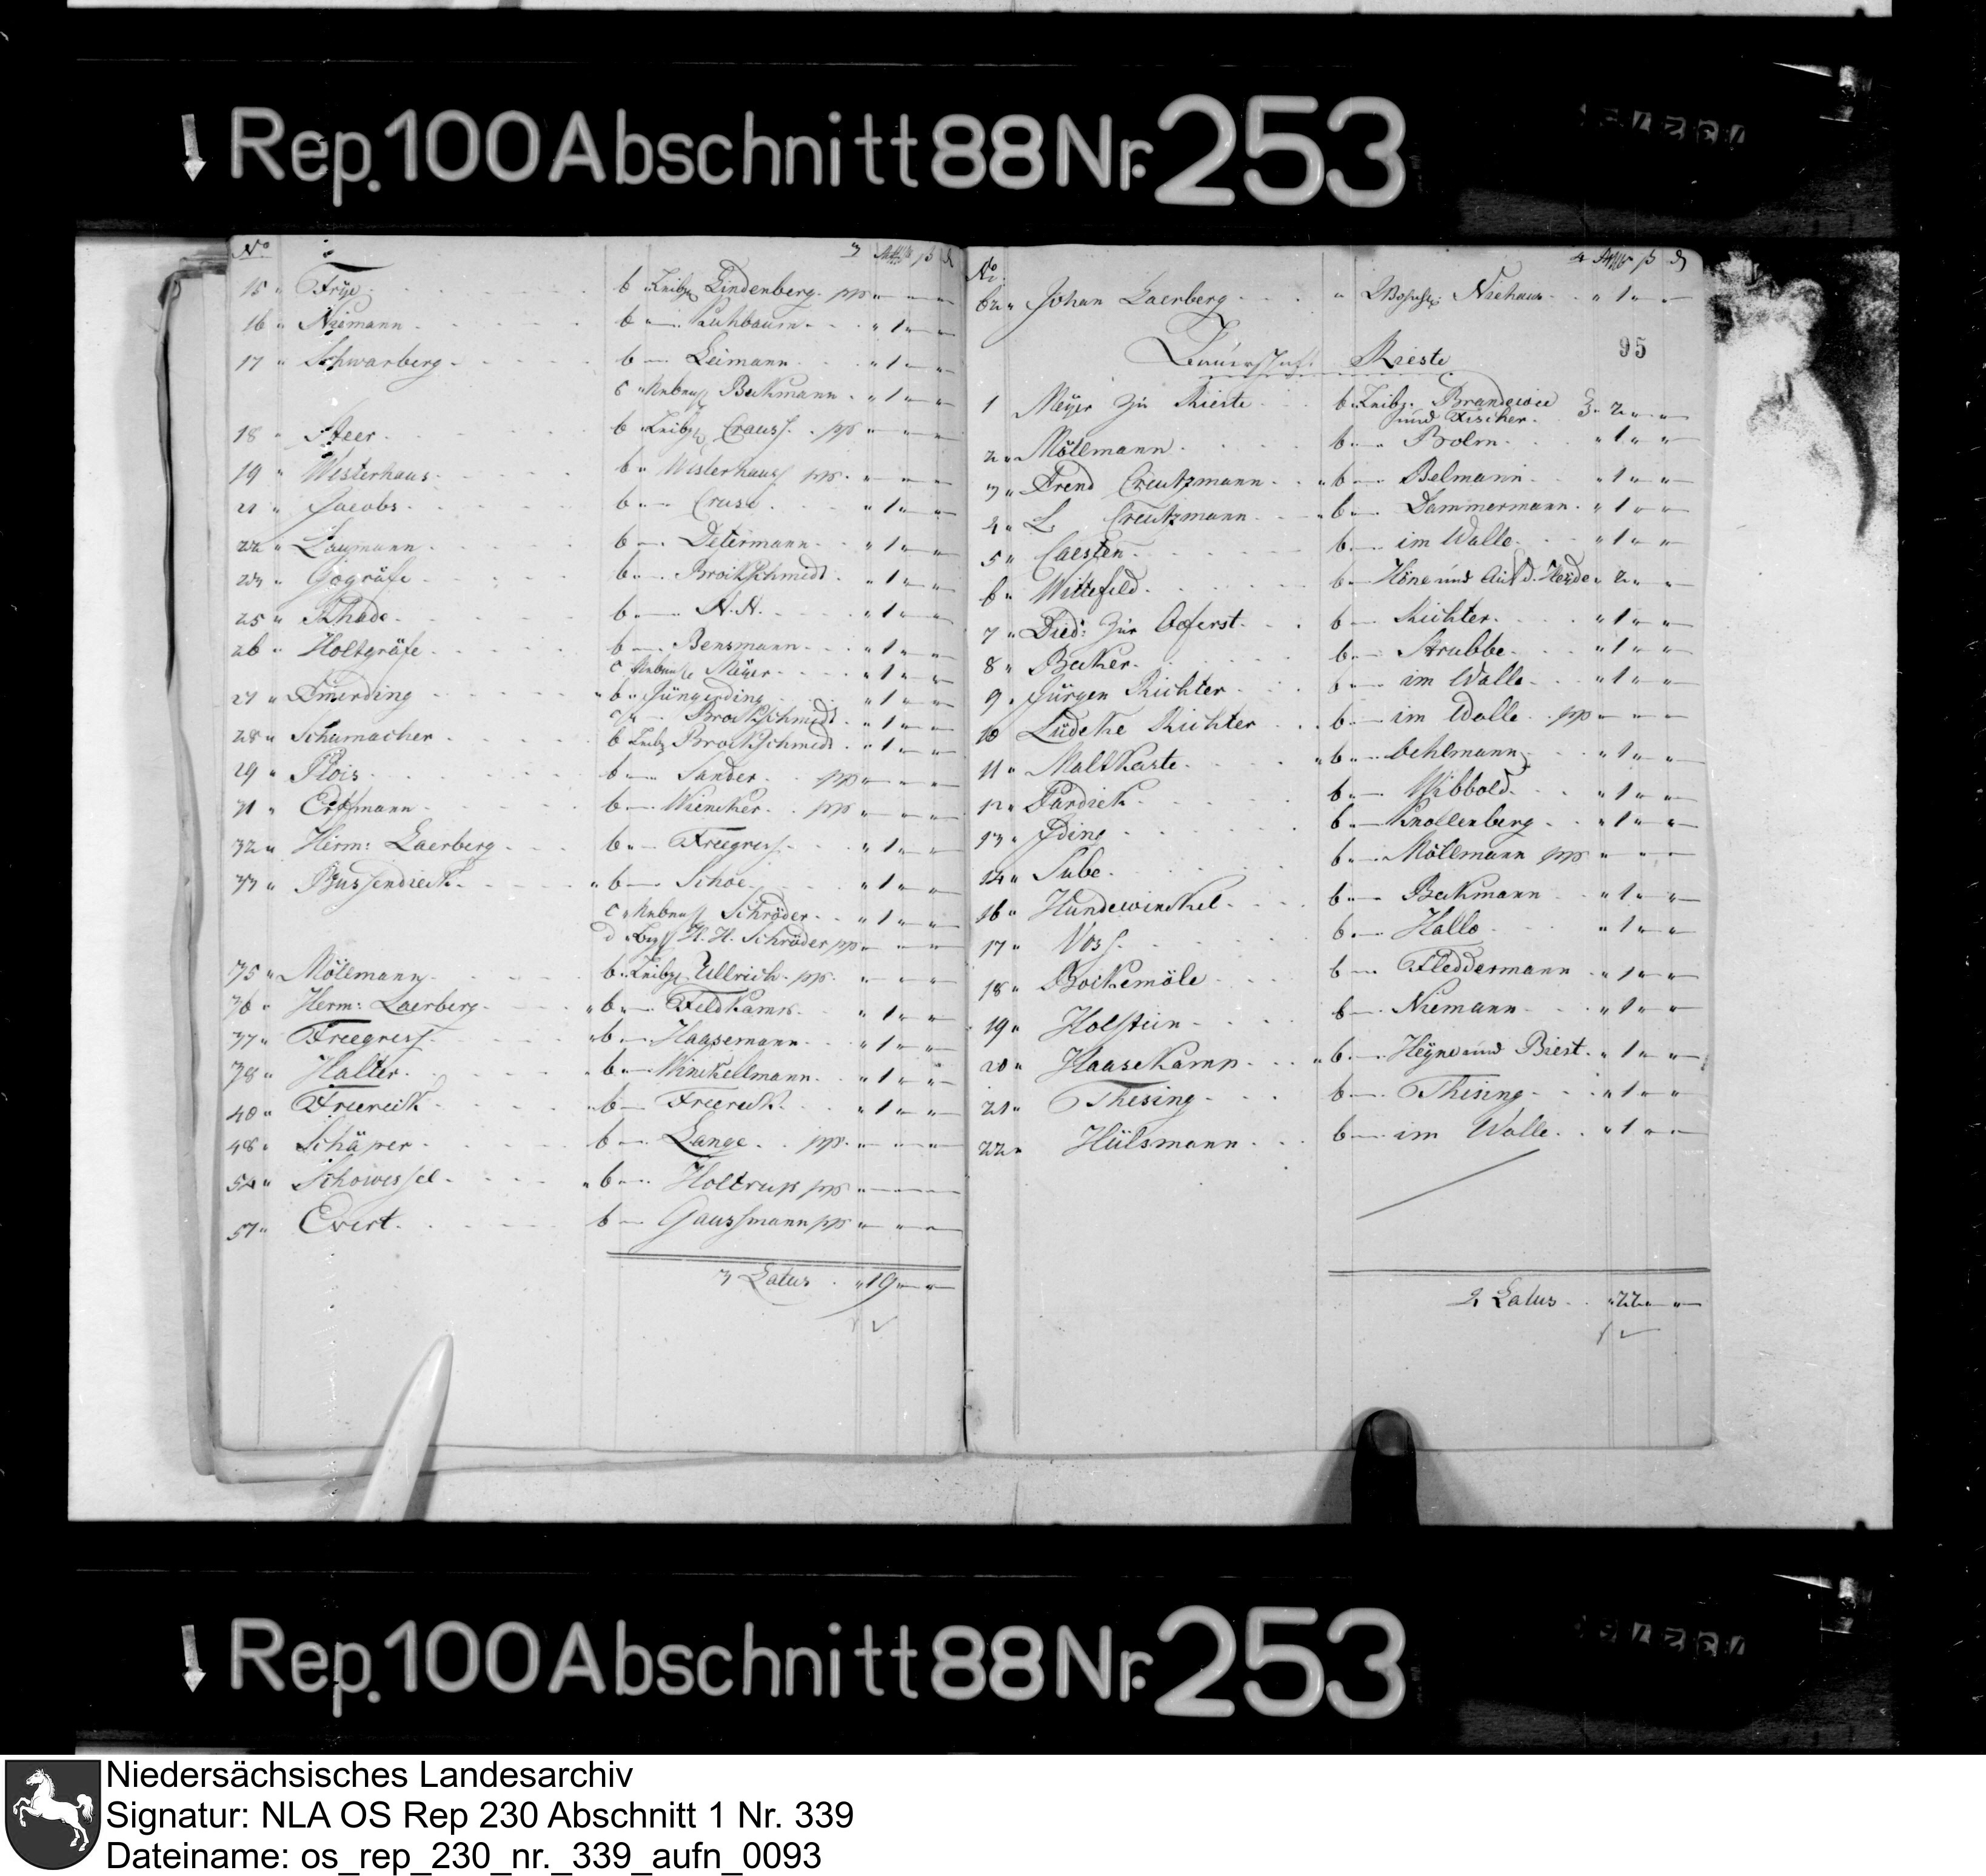 ↓ Rep. 100 Abschnitt 88 Nr. 253
No 3 Rthlr ß ₰
15 " Frye b " Leibz. Lindenberg pp " " "
16 " Niemann b " — Kuhbaum " 1 " "
17 " Schwarberg b — Leimann " 1 " "
c " Nebenh. Bekmann " 1 " "
18 " Steer b Leibz. Crauss. pp " " "
19 " Westerhaus b " Westerhaus pp " " "
21 " Jacobs b " — Cruse " 1 " "
22 " Laymann b — Determann " 1 " "
23 " Gogräfe b " — Brokschmidt " 1 " "
25 " Schade b " — N. N. " 1 " "
26 " Holtgräfe b — Bensmann " 1 " "
c Nebenh. Meyer " 1 " "
27 " Duerding " b " Jüngerding " 1 " "
c " — Brokschmidt " 1 " "
28 " Schumacher b Leibz. Brokschmidt " 1 " "
29 " Plois b — Sander pp " " "
31 " Ertmann b — Wieneker pp " " "
32 " Herm: Laerberg b " — Freegress " 1 " "
33 " Bussendiek " b — Schoe " 1 " "
c " Nebenh. Schröder " 1 " "
d " H. H. Schröder pp " " "
35 " Möllmann b " Leibz. Ullrich pp " " "
36 " Herm: Laerberg " b " — Feldkamp " 1 " "
37 " Freegress " b — Haasemann " 1 " "
38 " Halter " b " — Winckellmann " 1 " "
40 " Freerick " b — Freerick " 1 " "
48 " Schäper b — Lange pp " " "
54 " Schowessel " b — Holtrup pp " " "
57 " Evert b — Gaussmann pp " " "
3 Latus " 19 " "
No 4 Rthlr ß ₰
62 " Johan Laerberg " Niehaus " 1 " "
95
Bauerschaft Rieste
1 Meyer zu Rieste b " Leibz. Brandewie
und Fischer 3 " 2 " "
2 " Möllmann b " — Brolm " 1 " "
3 " Arend Creutzmann " b " — Belmann " 1 " "
4 " L. Creutzmann " b " — Dammermann " 1 " "
5 " Caesten b — im Walle " 1 " "
6 " Wittefeld b — Höne und Auf d. Heyde " 2 " "
7 " Died: zur Oeferst b — Richter " 1 " "
8 " Beker b " — Strubbe " 1 " "
9 " Jürgen Richter b — im Walle " 1 " "
10 Lüdeke Richter b — im Walle pp " " "
11 " Maltkaste " b " — Oehlmann " 1 " "
12 " Pardiek b " — Wibbold " 1 " "
13 " Iding b " — Knollenberg " 1 " "
14 " Sube b " — Möllmann pp " " "
16 " Hundewinckel b " — Bekmann " 1 " "
17 " Voss b " — Halle " 1 " "
18 " Bockemöle b — Fleddermann " 1 " "
19 " Holstein b — Niemann " 1 " "
20 " Haasekamp " b " — Heyne und Biest " 1 " "
21 " Thesing b — Thesing " 1 " "
22 " Hülsmann b — im Walle " 1 " "
2 Latus " 22 " "
↓ Rep. 100 Abschnitt 88 Nr. 253
Niedersächsisches Landesarchiv
Signatur: NLA OS Rep 230 Abschnitt 1 Nr. 339
Dateiname: os_rep_230_nr._339_aufn_0093